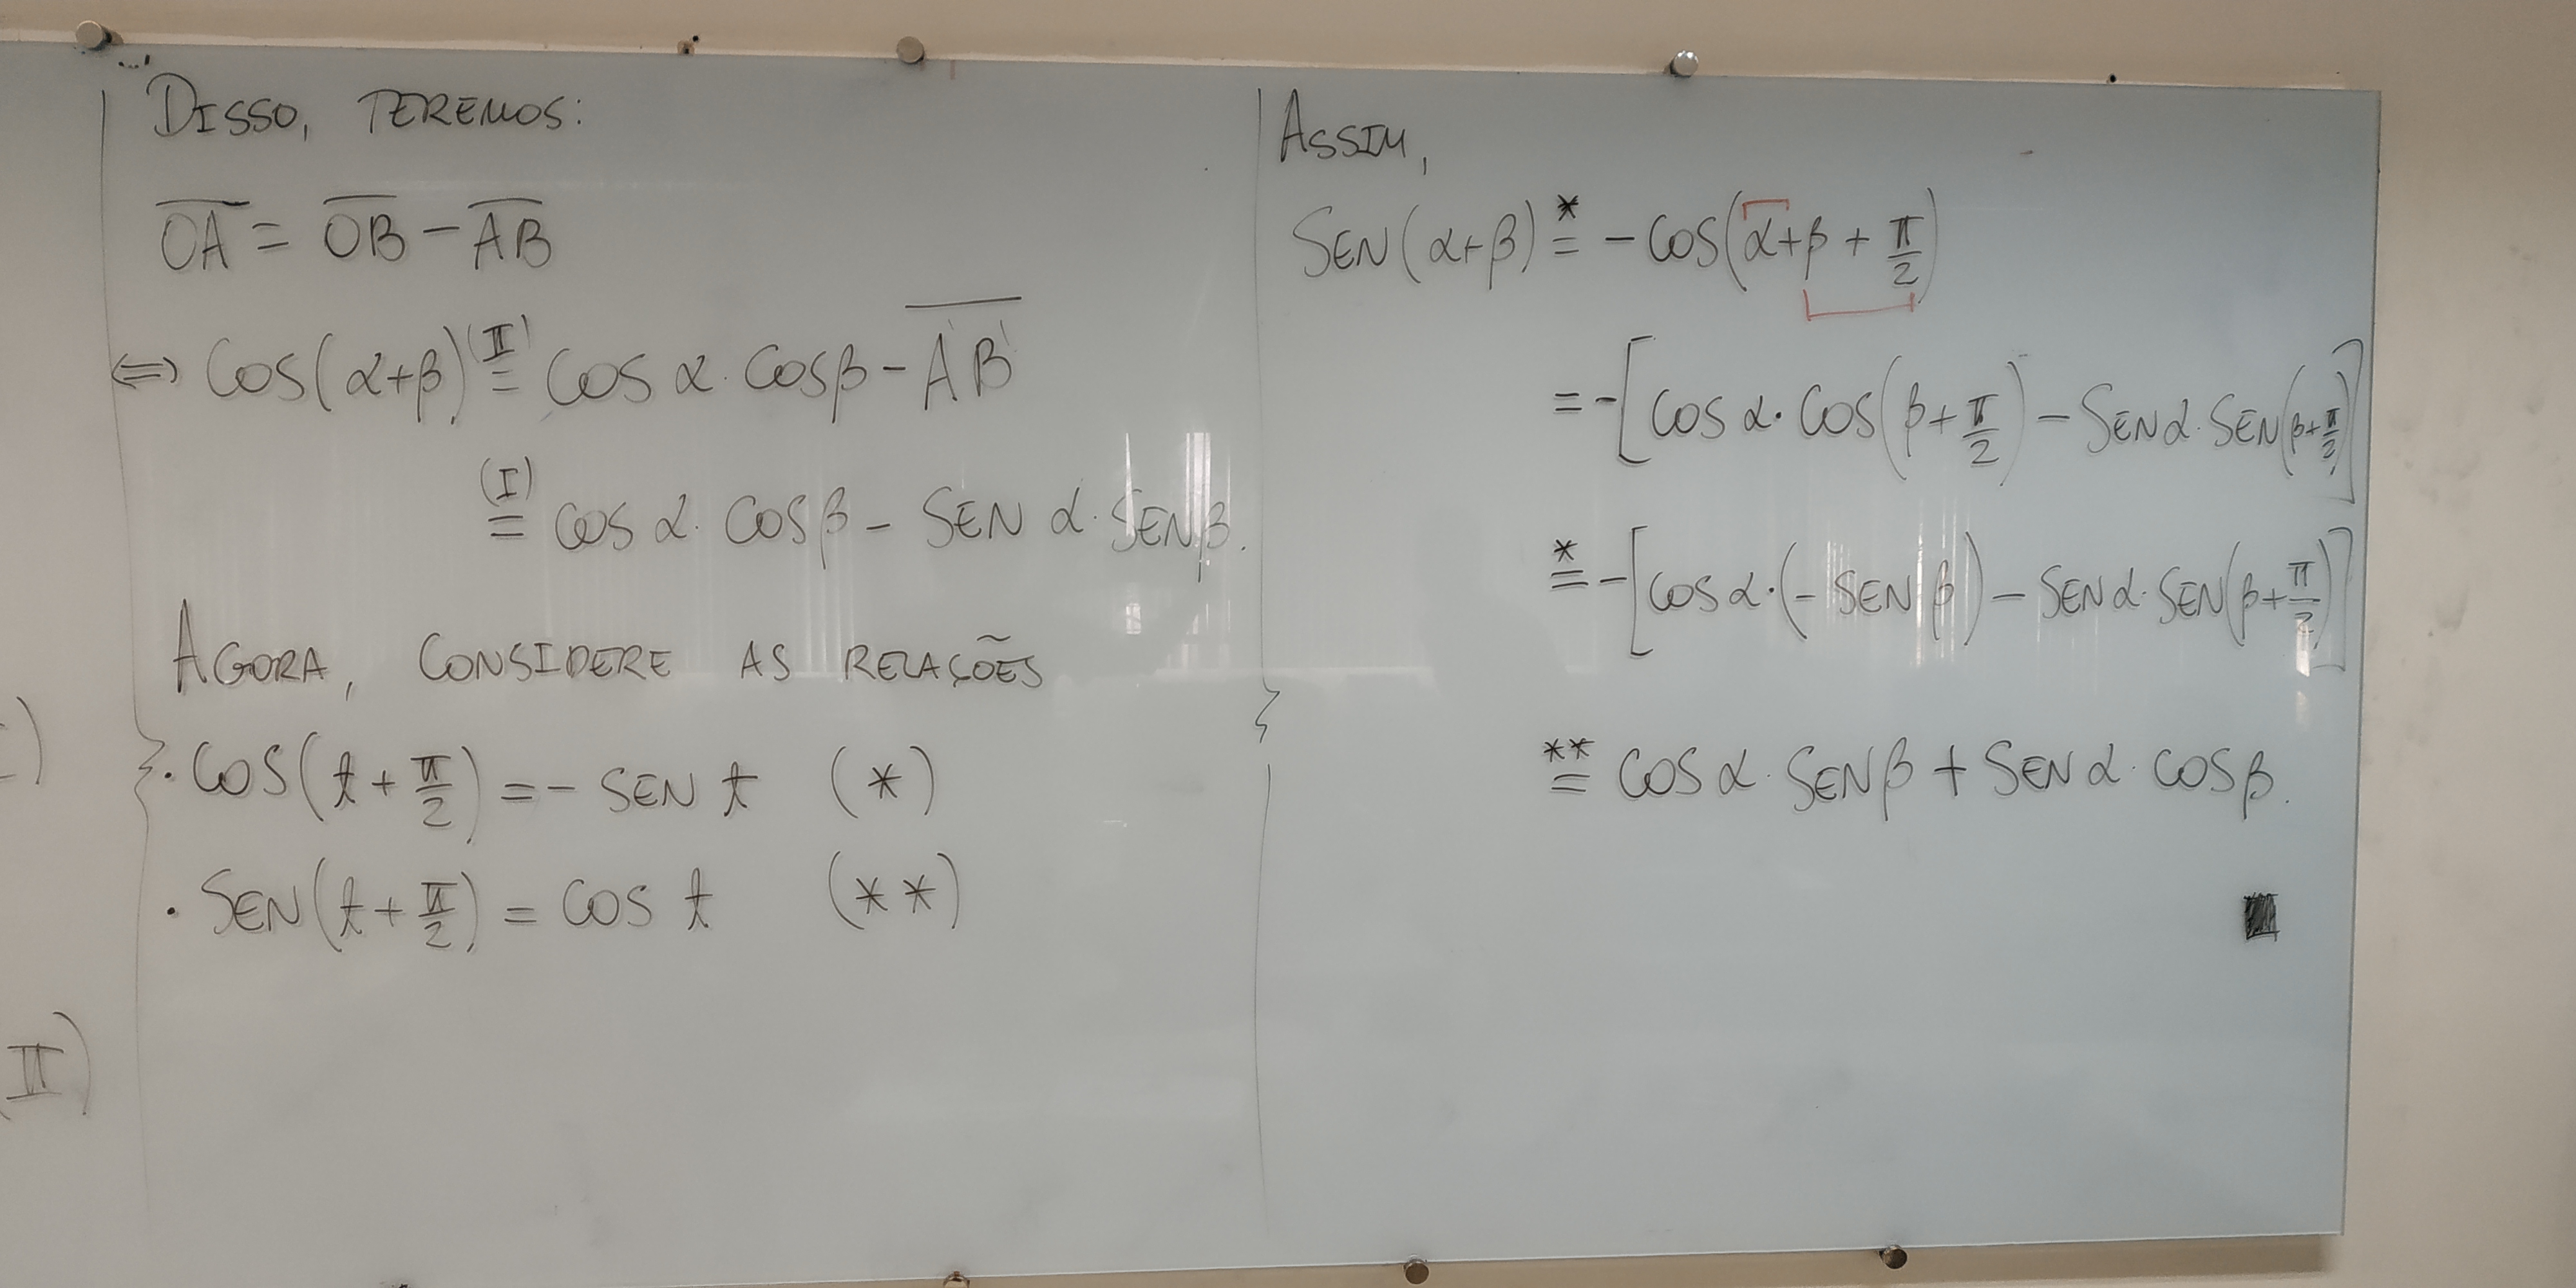 DISSO, TEREMOS:
O̅A̅ = O̅B̅ - A̅B̅
⟺ COS(α+β) (II)= COS α · COS β - A̅'̅B̅'̅
(I)= COS α · COS β - SEN α · SEN β.
AGORA, CONSIDERE AS RELAÇÕES
· COS(t + π/2) = - SEN t (*)
· SEN(t + π/2) = COS t (**)
II)
ASSIM,
SEN(α+β) *= - COS(α+β + π/2)
= -[COS α · COS(β + π/2) - SEN α · SEN(β + π/2)]
*= -[COS α · (- SEN β) - SEN α · SEN(β + π/2)]
**= COS α · SEN β + SEN α · COS β.
■